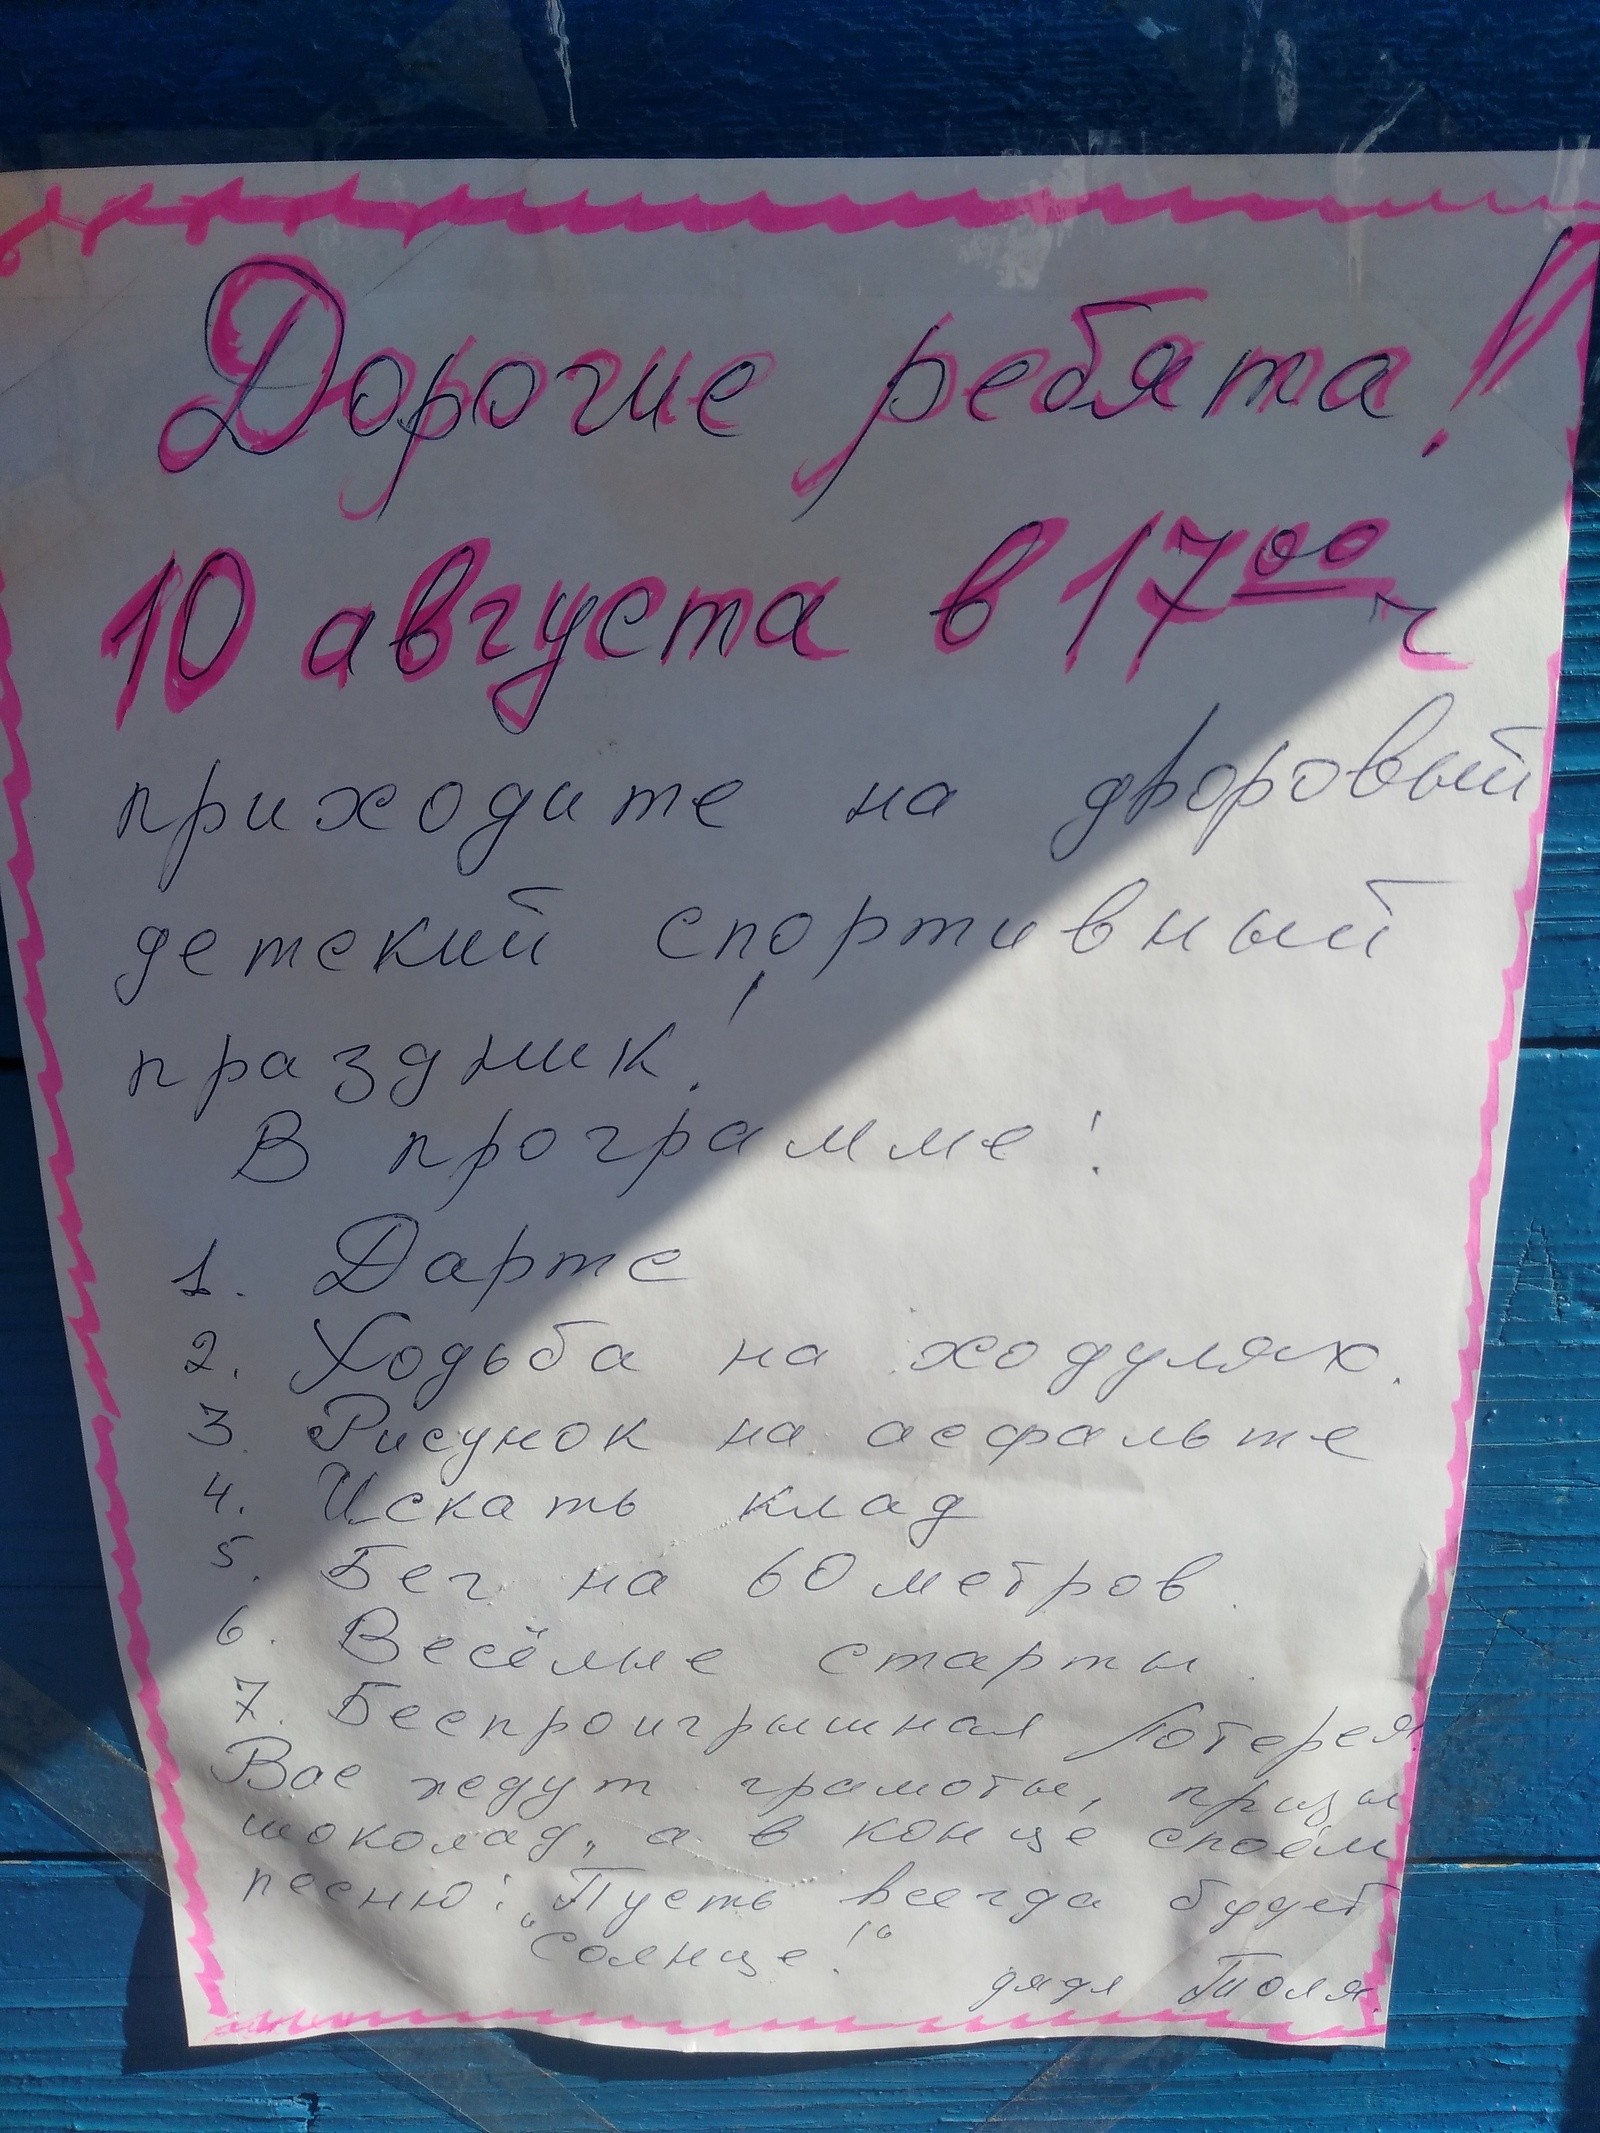 Дорогие ребята!
10 августа в 17⁰⁰ ч
приходите на дворовый
детский спортивный
праздник!
В программе!
1. Дартс
2. Ходьба на ходулях.
3. Рисунок на асфальте
4. Искать клад
5. Бег на 60 метров.
6. Весёлые старты.
7. Беспроигрышная лотерея.
Вас ждут грамоты, призы
шоколад, а в конце споём
песню: „Пусть всегда будет
солнце!“
дядя Толя.